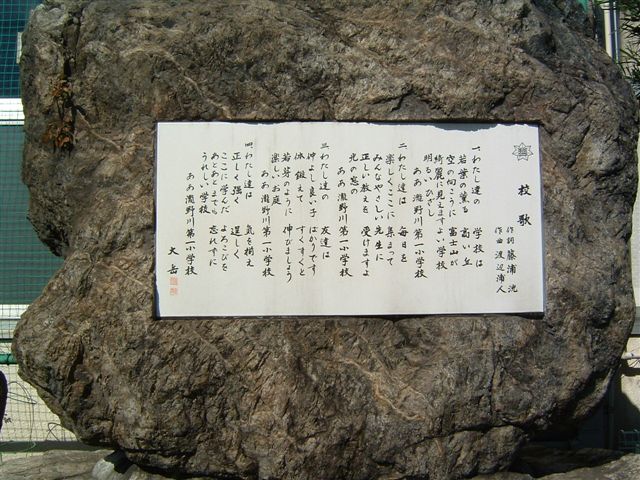 校歌
作詞 藤浦洸
作曲 渡辺浦人
一、わたし達の 学校は
若葉の薫る 高い丘
空の向こうに 富士山が
綺麗に見えますよい学校
明るいひざし
ああ 滝野川第一小学校
二、わたし達は 毎日を
楽しくここに 集まって
みんなやさしい 先生に
正しい教えを 受けますよ
光の窓の
ああ 滝野川第一小学校
三、わたし達の 友達は
仲よし良い子 ばかりです
体鍛えて すくすくと
若芽のように 伸びましょう
楽しいお庭
ああ 滝野川第一小学校
四、わたし達は 気を揃え
正しく強く 逞しく
ここに学んだ よろこびを
あとあとまでも 忘れずに
うれしい学校
ああ 滝野川第一小学校
大岳